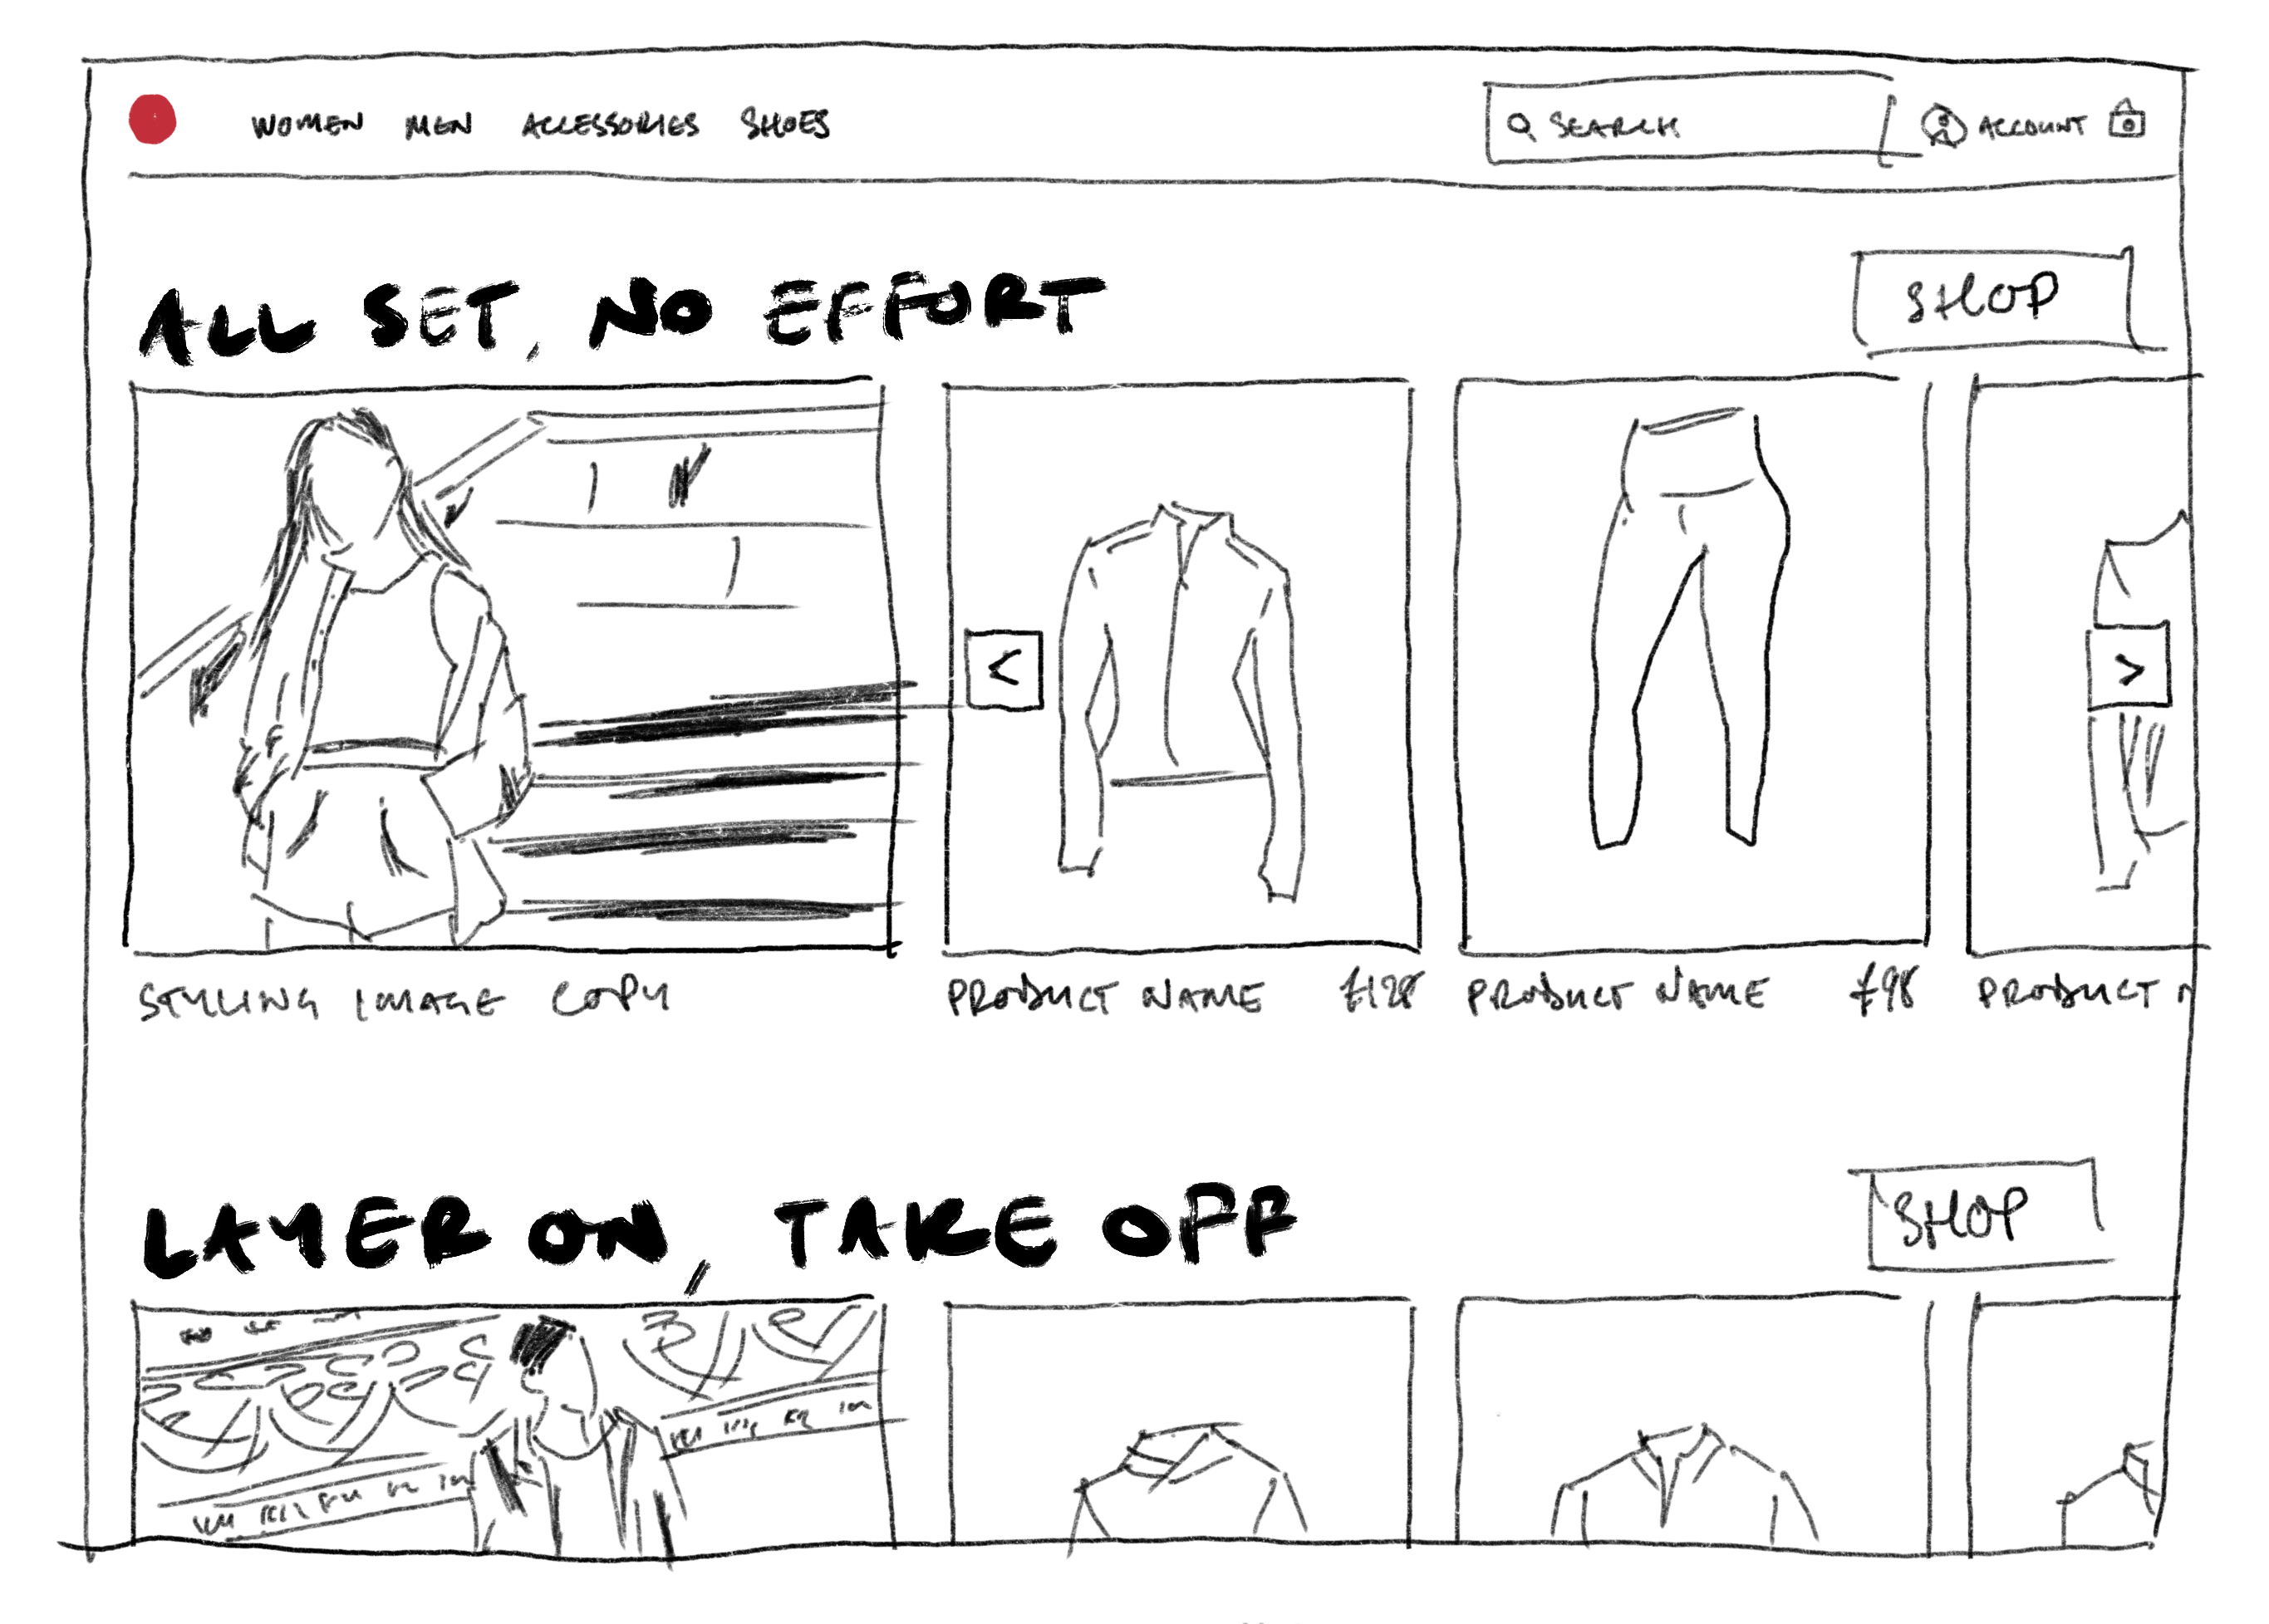 WOMEN MEN ACCESSORIES SHOES SEARCH ACCOUNT
ALL SET, NO EFFORT SHOP
<
>
STYLING IMAGE COPY PRODUCT NAME £128 PRODUCT NAME £98 PRODUCT N
LAYER ON, TAKE OFF SHOP